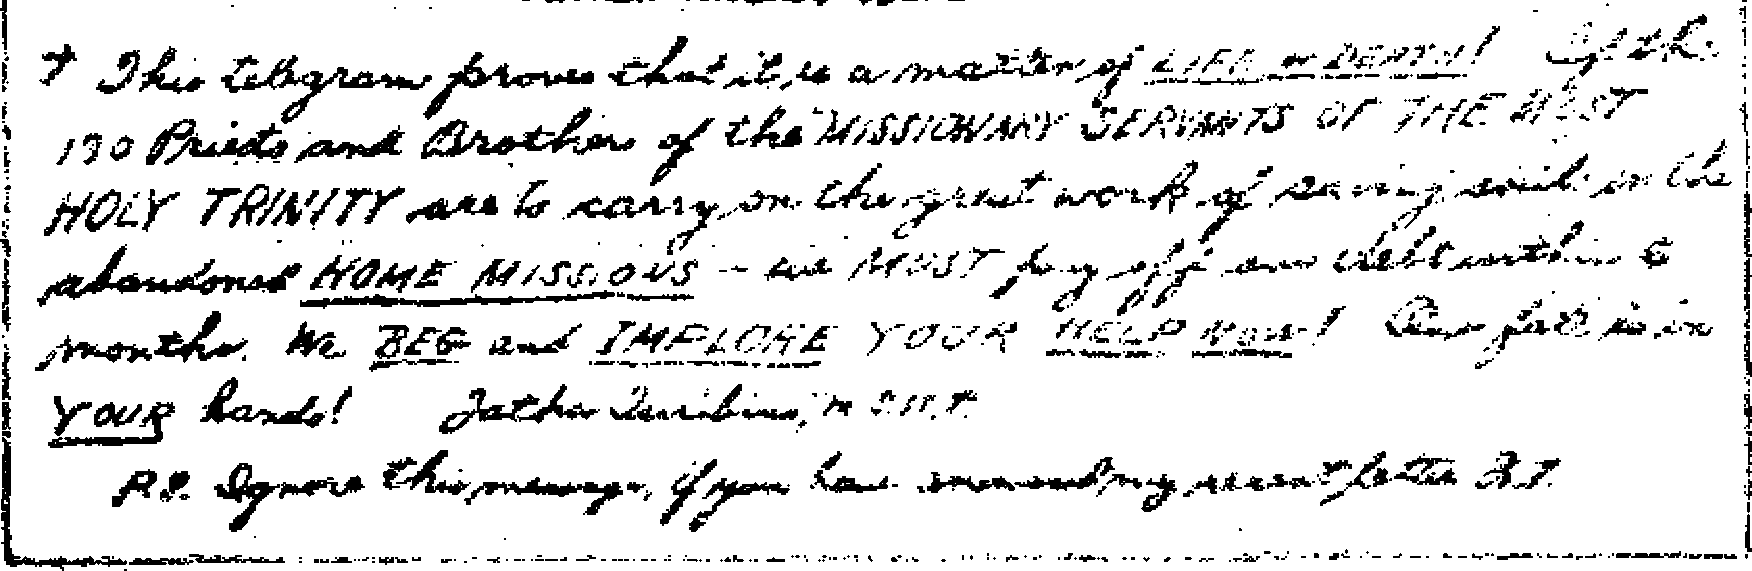 + This telegram proves that it is a matter of LIFE or DEATH! If the
130 Priests and Brothers of the MISSIONARY SERVANTS OF THE MOST
HOLY TRINITY are to carry on the great work of saving souls in the
abandoned HOME MISSIONS - we MUST pay off our debt within 6
months. We BEG and IMPLORE YOUR HELP NOW! Our fate is in
YOUR hands! Father Turibius, M.S.SS.T.
P.S. Ignore this message, if you have answered my recent letter F.T.